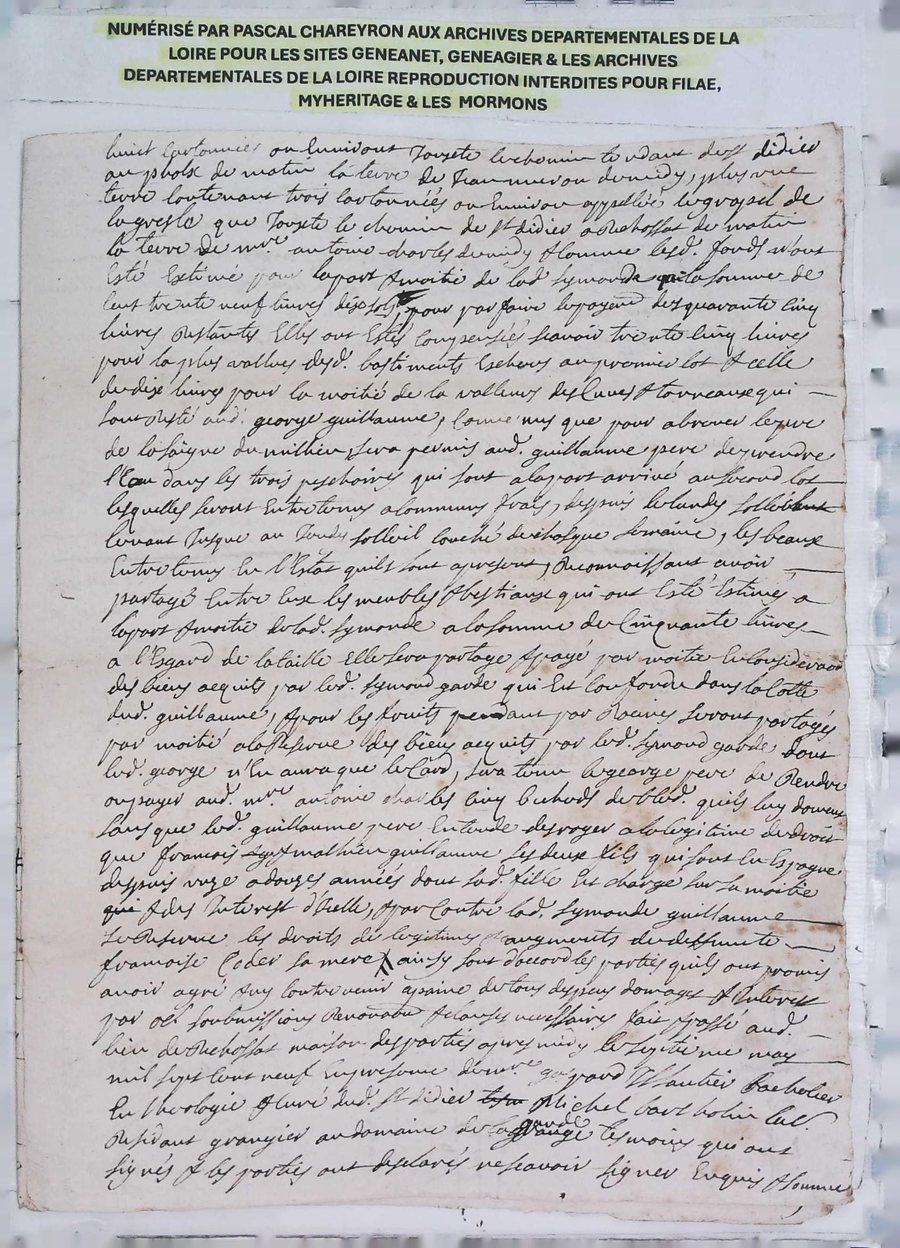 NUMÉRISÉ PAR PASCAL CHAREYRON AUX ARCHIVES DEPARTEMENTALES DE LA
LOIRE POUR LES SITES GENEANET, GENEAGIER & LES ARCHIVES
DEPARTEMENTALES DE LA LOIRE REPRODUCTION INTERDITES POUR FILAE,
MYHERITAGE & LES MORMONS
huict cartonnées ou Environt Jouxte le chemin tendant de st didier
au de matin la terre de Jean de midy, plus une
terre contenant trois cartonnées ou Environ appellée de
la que Jouxte le chemin de st didier a Rechossat de matin
la terre de mre. antoine charles de midy & comme lesd. fonds n'ont
Esté Extimé pour la part & moitié de lad. symonde la somme de
cent trente neuf livres dix sols, pour parfaire le payemt des quarante cinq
livres Restantes Elles ont Estés Compensées scavoir trente cinq livres
pour la plus vallues desd. bastiments Escheus au premier lot & celle
de dix livres pour la moitié de la valleurs des Cuves & tonneaux qui
sont Resté aud. george guillaume, Comme aussy que pour abrever le pre
de la saigne du milhieu, sera permis aud. guillaume pere de prendre
l'Eau dans les trois peschoires qui sont a la part arrivé au second lot
lesquelles seront Entretenus a communs frais, despuis le lundy solleil
levant Jusque au Jeudy solleil couché de chasque semaine, les beaux
Entretenus En l'Estat quils sont a present, Reconnoissant avoir
partagé Entre Eux les meubles & bestiaux qui ont Esté Estimés a
la part & moitié de lad. symonde a la somme de Cinquante livres
a l'Esgard de la taille Elle sera partagé & payé par moitié En Consideraon
des biens acquits par led. symond garde qui Est Confondu dans la Cotte
dud. guillaume, & pour les fruits pendant par Racines seront partagés
par moitié a la Reserve des biens acquits par led. symond garde dont
led. george n'En aura que le Card, sera tenu le george pere de Rendre
ou payer aud. mre antoine charles cinq bichets de bled. quils luy doivent
sans que led. guillaume pere Entende desroger a la legitime de droit
que francois mathieu guillaume ses deux fils qui sont En Espagne
despuis unze a douzes années dont lad. fille Est chargé sur sa moitié
& des Interest d'Icelle, & par Contre lad. symonde guillaume
se Reserve les droits de legitimes & augments de deffunte
francoise Coder sa mere ainsy sont d'accord les parties quils ont promis
avoir agré & ny contrevenir a peine de tous despens domages & Interest
par obl. soubmissions Renonaon & clauses necessaires fait & passé aud.
lieu de Rechossat maison des parties apres midy le septieme may
mil sept cent neuf En presence de mre gaspard bachelier
En theologie & curé dud. st didier Michel barthelin
Residant grangier au domaine de la garde tesmoins qui ont
signés & les parties ont desclarés ne scavoir signer Enquis & sommé